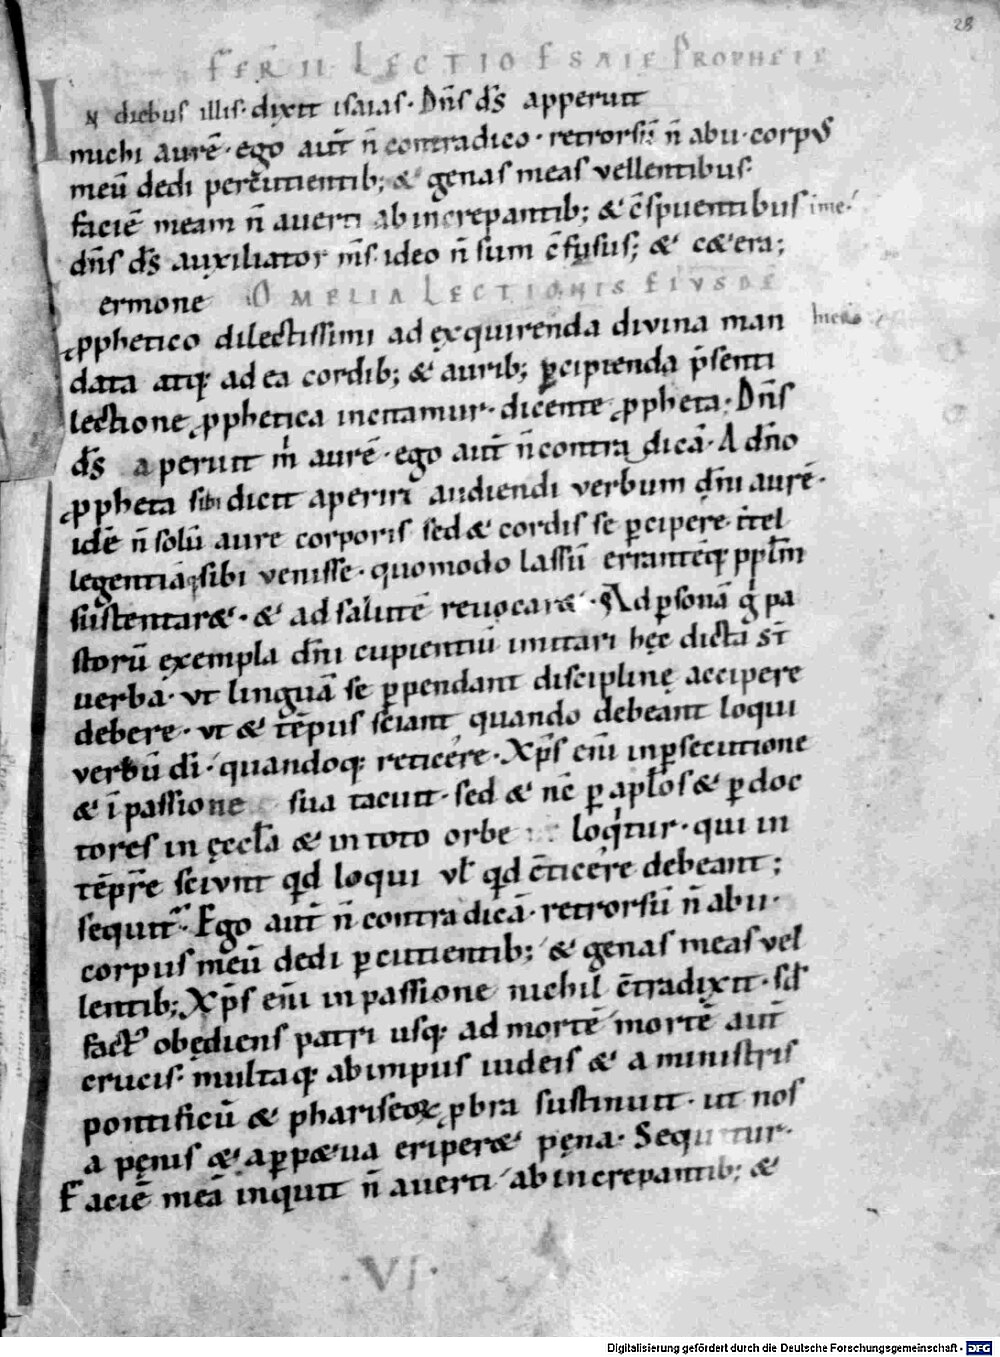 28
FER̄ II LECTIO ESAIE PROPHETE
IN diebus illis· dixit isaias· Dn̄s ds̄ apperuit
michi aurē· ego aut̄ n̄ contradico· retrorsū n̄ abii· corpus
meū dedi percutientib; & genas meas vellentibus·
faciē meam n̄ averti ab increpantib; & c̄spuentibus i me·
dn̄s ds̄ auxiliator m̄s· ideo n̄ sum c̄fusus; & cęt&era;
ermone OMELIA LECTIONIS EIVSDĒ
ꝓphetico dilectissimi ad exquirenda divina man
data atq; ad ea cordib; & aurib; ꝑcipienda p̄senti
lectione ꝓphetica incitamur· dicente ꝓpheta· Dn̄s
ds̄ aperuit m̄ aurē· ego aut̄ n̄ contra dicā· A dn̄o
ꝓpheta sibi dicit aperiri audiendi verbum dn̄i aurē·
idē n̄ solū aure corporis sed & cordis se ꝑcipere ītel
legentiā sibi venisse· quomodo lassū errantēq; ppl̄m
sustentar&· & ad salutē revocar&· Ad ꝑsonā g̊ pa
storū exempla dn̄i cupientiū imitari hęc dicta st̄
verba· ut linguā se ꝑpendant disciplinę accipere
debere· ut & tēpus sciant quando debeant loqui
verbū dī· quandoq; reticere· Xp̄s em̄ in ꝑsecutione
& ī passione sua tacuit· sed & nc̄ ꝑ apl̄os & ꝑ doc
tores in ęccl̄a & in toto orbe loqͥtur· qui in
tēpr̄e sciunt qd̄ loqui vl̄ qd̄ c̄ticere debeant;
sequit̄· Ego aut̄ n̄ contradicā· retrorsū n̄ abii·
corpus meū dedi ꝑcutientib; & genas meas vel
lentib; Xp̄s em̄ in passione nichil c̄tradixit· sed̄
fact᾽ obediens patri usq; ad mortē mortē aut̄
crucis· multaq; ab impiis iudeis & a ministris
pontificū & phariseoꝝ ꝓbra sustinuit· ut nos
a pęnis & a ꝑp&ua eriper& pęna· Sequitur·
Faciē meā inquit n̄ averti ab increpantib; &
·VI·
Digitalisierung gefördert durch die Deutsche Forschungsgemeinschaft - DFG